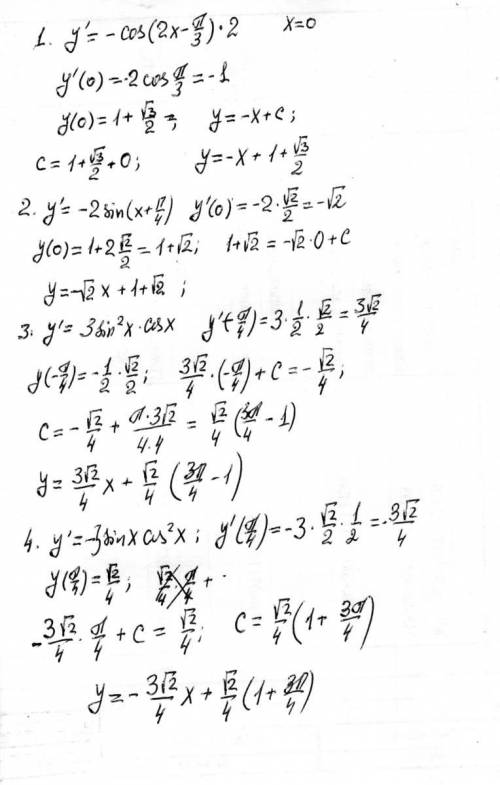 1. y' = -cos(2x-π/3)·2   x=0
y'(0) = -2cos π/3 = -1
y(0) = 1+√3/2 =;   y=-x+c;
c = 1+√3/2+0;   y=-x+1+√3/2
2. y'=-2sin(x+π/4)   y'(0)=-2·√2/2=-√2
y(0)=1+2√2/2=1+√2;   1+√2=-√2·0+c
y=-√2x+1+√2;
3. y'=3sin²x·cosx   y'(-π/4)=3·1/2·√2/2=3√2/4
y(-π/4)=-1/2·√2/2;   3√2/4·(-π/4)+c=-√2/4;
c=-√2/4+π·3√2/4·4=√2/4(3π/4-1)
y=3√2/4x+√2/4(3π/4-1)
4. y'=-3sinxcos²x;   y'(π/4)=-3·√2/2·1/2=-3√2/4
y(π/4)=√2/4;
-3√2/4·π/4+c=√2/4;   c=√2/4(1+3π/4)
y=-3√2/4x+√2/4(1+3π/4)